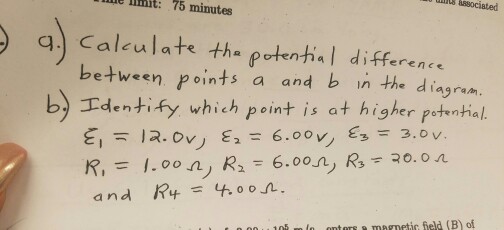 limit: 75 minutes
associated
a.) Calculate the potential difference
between points a and b in the diagram.
b.) Identify which point is at higher potential.
Ɛ₁ = 12.0v, Ɛ₂ = 6.00v, Ɛ₃ = 3.0v.
R₁ = 1.00Ω, R₂ = 6.00Ω, R₃ = 20.0Ω
and R4 = 4.00Ω.
enters a magnetic field (B) of